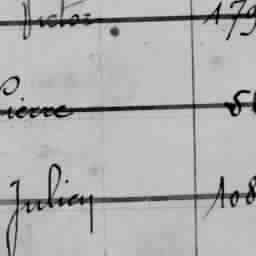 Victor 179
Pierre 8
Julien 108